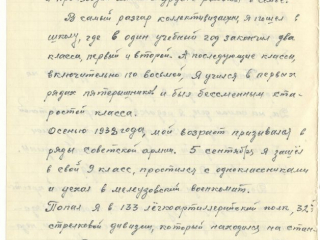 В самый разгар коллективизации я пошел в
школу, где в один учебный год закончил два
класса, первый и второй. А последующие классы,
включительно по восьмой. Я учился в первых
рядах пятерошников и был бессменным ста-
ростой класса.
Осенью 1939 года, мой возраст призывался в
ряды советской армии. 5 сентября я зашёл
в свой 9 класс, простился с одноклассниками
и уехал в мелеузовский военкомат.
Попал я в 133 лёгкоартиллерийский полк,
стрелковой дивизии, который находился на стан-